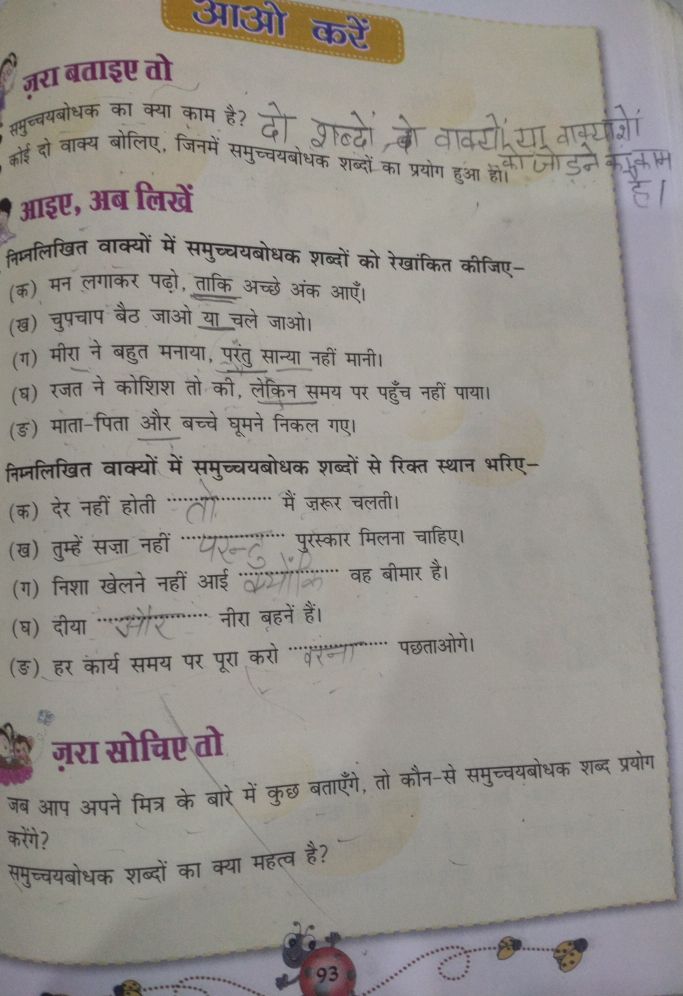 आओ करें
ज़रा बताइए तो
समुच्चयबोधक का क्या काम है? दो शब्दों, दो वाक्यों या वाक्यांशों
को जोड़ने का काम
है।
कोई दो वाक्य बोलिए, जिनमें समुच्चयबोधक शब्दों का प्रयोग हुआ हो।
आइए, अब लिखें
निम्नलिखित वाक्यों में समुच्चयबोधक शब्दों को रेखांकित कीजिए–
(क) मन लगाकर पढ़ो, ताकि अच्छे अंक आएँ।
(ख) चुपचाप बैठ जाओ या चले जाओ।
(ग) मीरा ने बहुत मनाया, परंतु सान्या नहीं मानी।
(घ) रजत ने कोशिश तो की, लेकिन समय पर पहुँच नहीं पाया।
(ङ) माता-पिता और बच्चे घूमने निकल गए।
निम्नलिखित वाक्यों में समुच्चयबोधक शब्दों से रिक्त स्थान भरिए–
(क) देर नहीं होती तो मैं ज़रूर चलती।
(ख) तुम्हें सज़ा नहीं परन्तु पुरस्कार मिलना चाहिए।
(ग) निशा खेलने नहीं आई क्योंकि वह बीमार है।
(घ) दीया और नीरा बहनें हैं।
(ङ) हर कार्य समय पर पूरा करो वरना पछताओगे।
ज़रा सोचिए तो
जब आप अपने मित्र के बारे में कुछ बताएँगे, तो कौन-से समुच्चयबोधक शब्द प्रयोग
करेंगे?
समुच्चयबोधक शब्दों का क्या महत्व है?
93